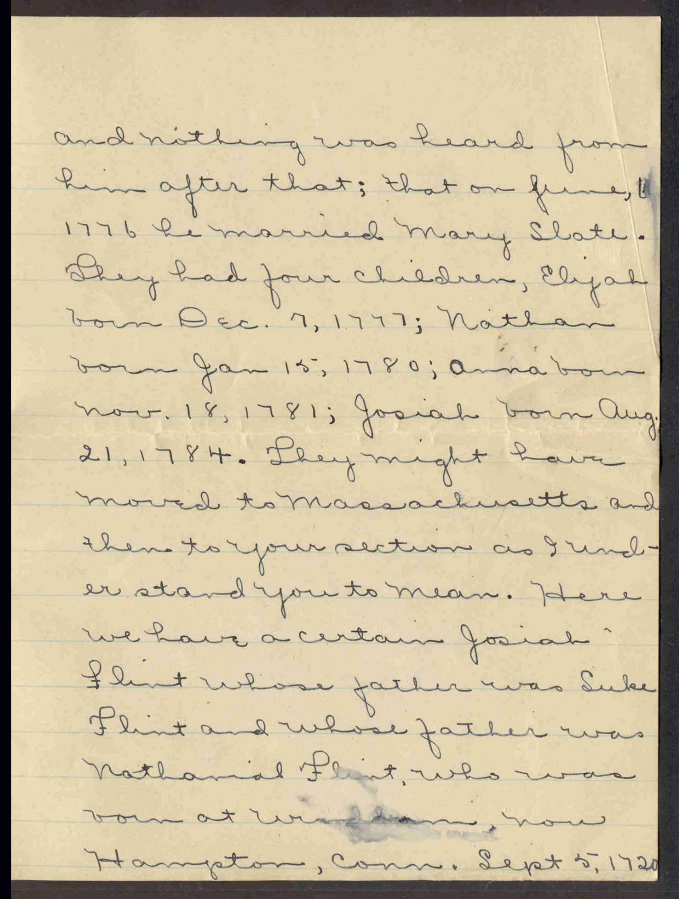 and nothing was heard from
him after that; that on June, 1
1776 he married Mary Slate.
They had four children, Elijah
born Dec. 7, 1777; Nathan
born Jan 15, 1780; Anna born
Nov. 18, 1781; Josiah born Aug.
21, 1784. They might have
moved to Massachusetts and
then to your section as I und-
er stand you to mean. Here
we have a certain Josiah
Flint whose father was Luke
Flint and whose father was
Nathanial Flint, who was
born at Windham, now
Hampton, Conn. Sept 5, 1720